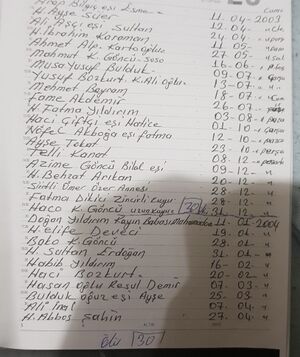 Arap Bilgiç eşi Esme
H. Ayşe Süer 11-04-2003
Ali Aşçı eşi Sultan 12-04-"
H. İbrahim Karaman 24-04-"
Ahmet Alp. Kartoğlu 11-05-
Mahmut K. Göncü-Soso 27-05-
Musa Yusuf Bulduk 16-06-
Yusuf Bozkurt. K. Ali oğlu 09-07-
Mehmet Bayram 13-07-
Fame Akdemir 18-07-
H Fatma Yıldırım 26-07-
Hacı Çiftçi eşi Hatice 03-08-
Nofel Akboğa eşi fatma 01-10-
Ayşe Tokat 12-10-
Telli Kanat 23-10-
Azime Göncü Bilal eşi 08-12-
H. Behzat Arıkan 09-12-"
Sıdtlı Ömer Özer Annesi 20-12-"
Fatma Dikilu Zincirli Kuyu 28-12-"
Haco K. Göncü uzunkuyu 30 31-12-"
Doğan Yıldırım Kayın Babası Muhammed 11-01-2004
H. elife Deveci 19-01-"
Boko K. Göncü 28-01-"
H. Sultan Erdoğan 31-01-"
Hadi Yıldırım 16-02-"
Hacı Bozkurt 20-02-"
Hasan oğlu Resul Demir 07-03-"
Bulduk oğuz eşi Ayşe 25-03-"
Ali İnal 07-04-"
H. Abbas Şahin 27-04-"
Ölü 30